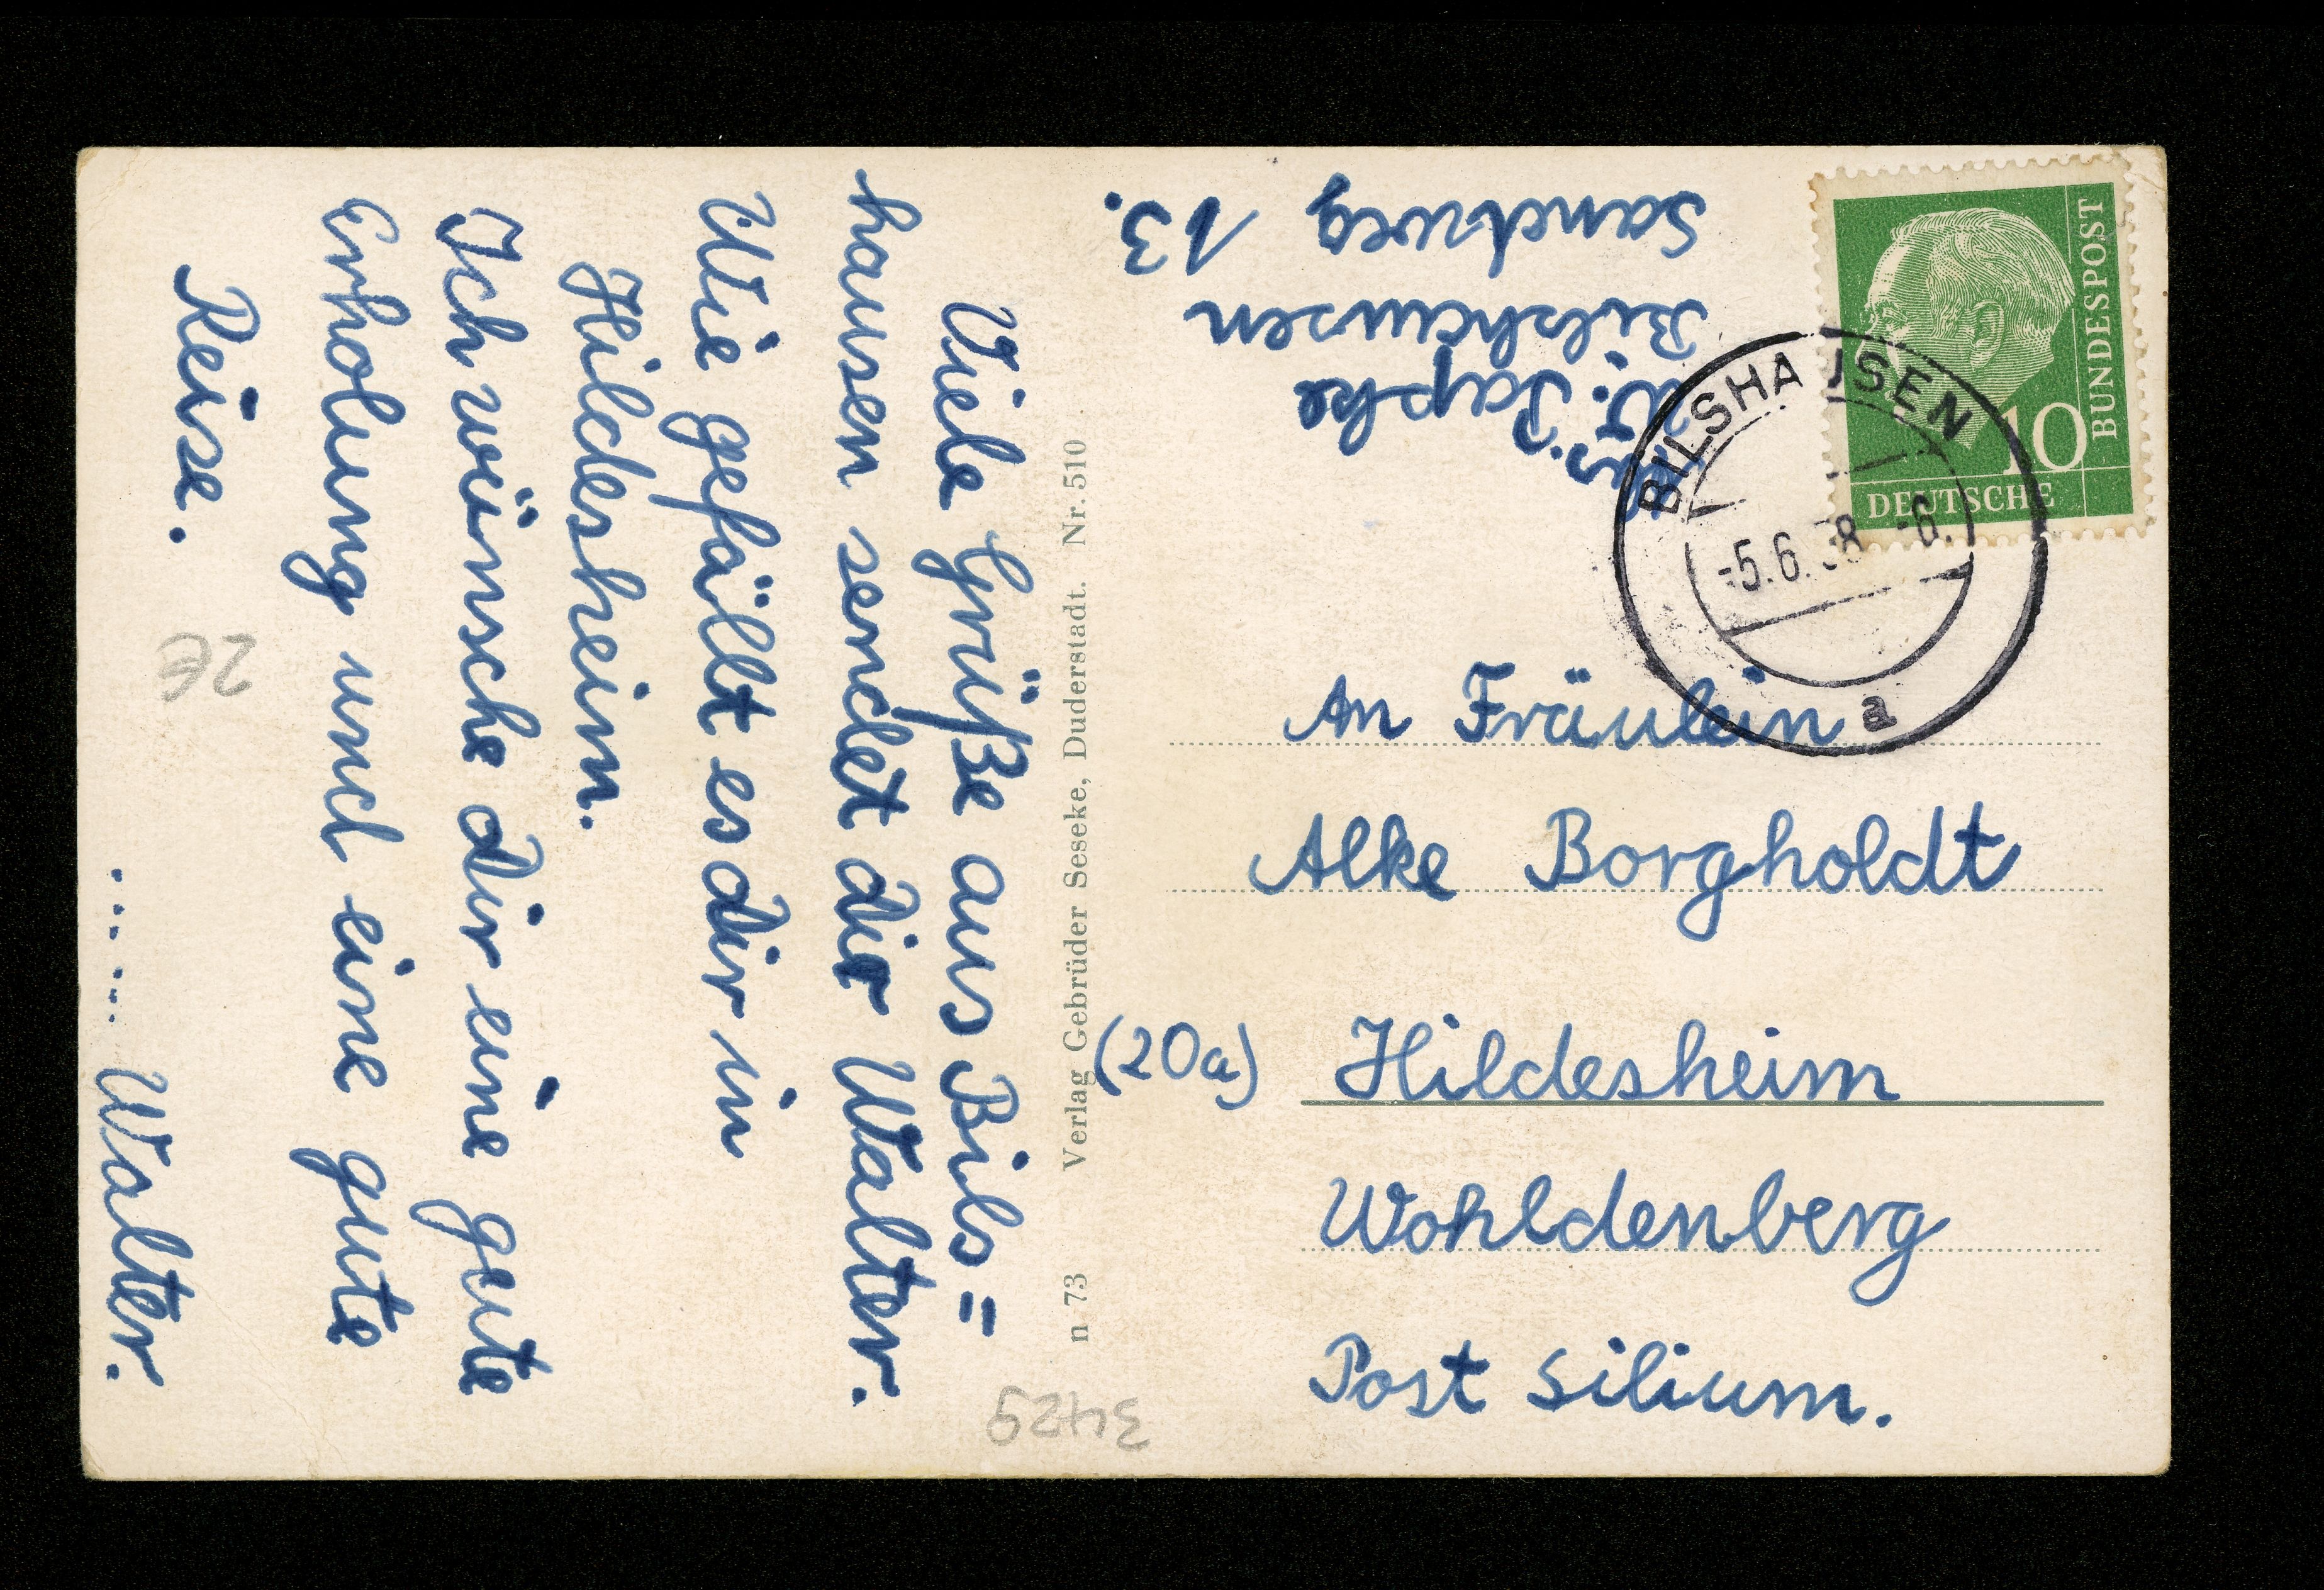 Viele Grüße aus Bils=
hausen sendet dir Walter.
Wie gefällt es dir in
Hildesheim.
Ich wünsche dir eine gute
Erholung und eine gute
Reise.
..... Walter.
2€
3429
n 73 Verlag Gebrüder Seseke, Duderstadt. Nr. 510
Bilshausen
Sandweg 13.
DEUTSCHE BUNDESPOST
10
BILSHAUSEN
-5.6.58 -6.
a
An Fräulein
Alke Borgholdt
(20a) Hildesheim
Wohldenberg
Post Silium.